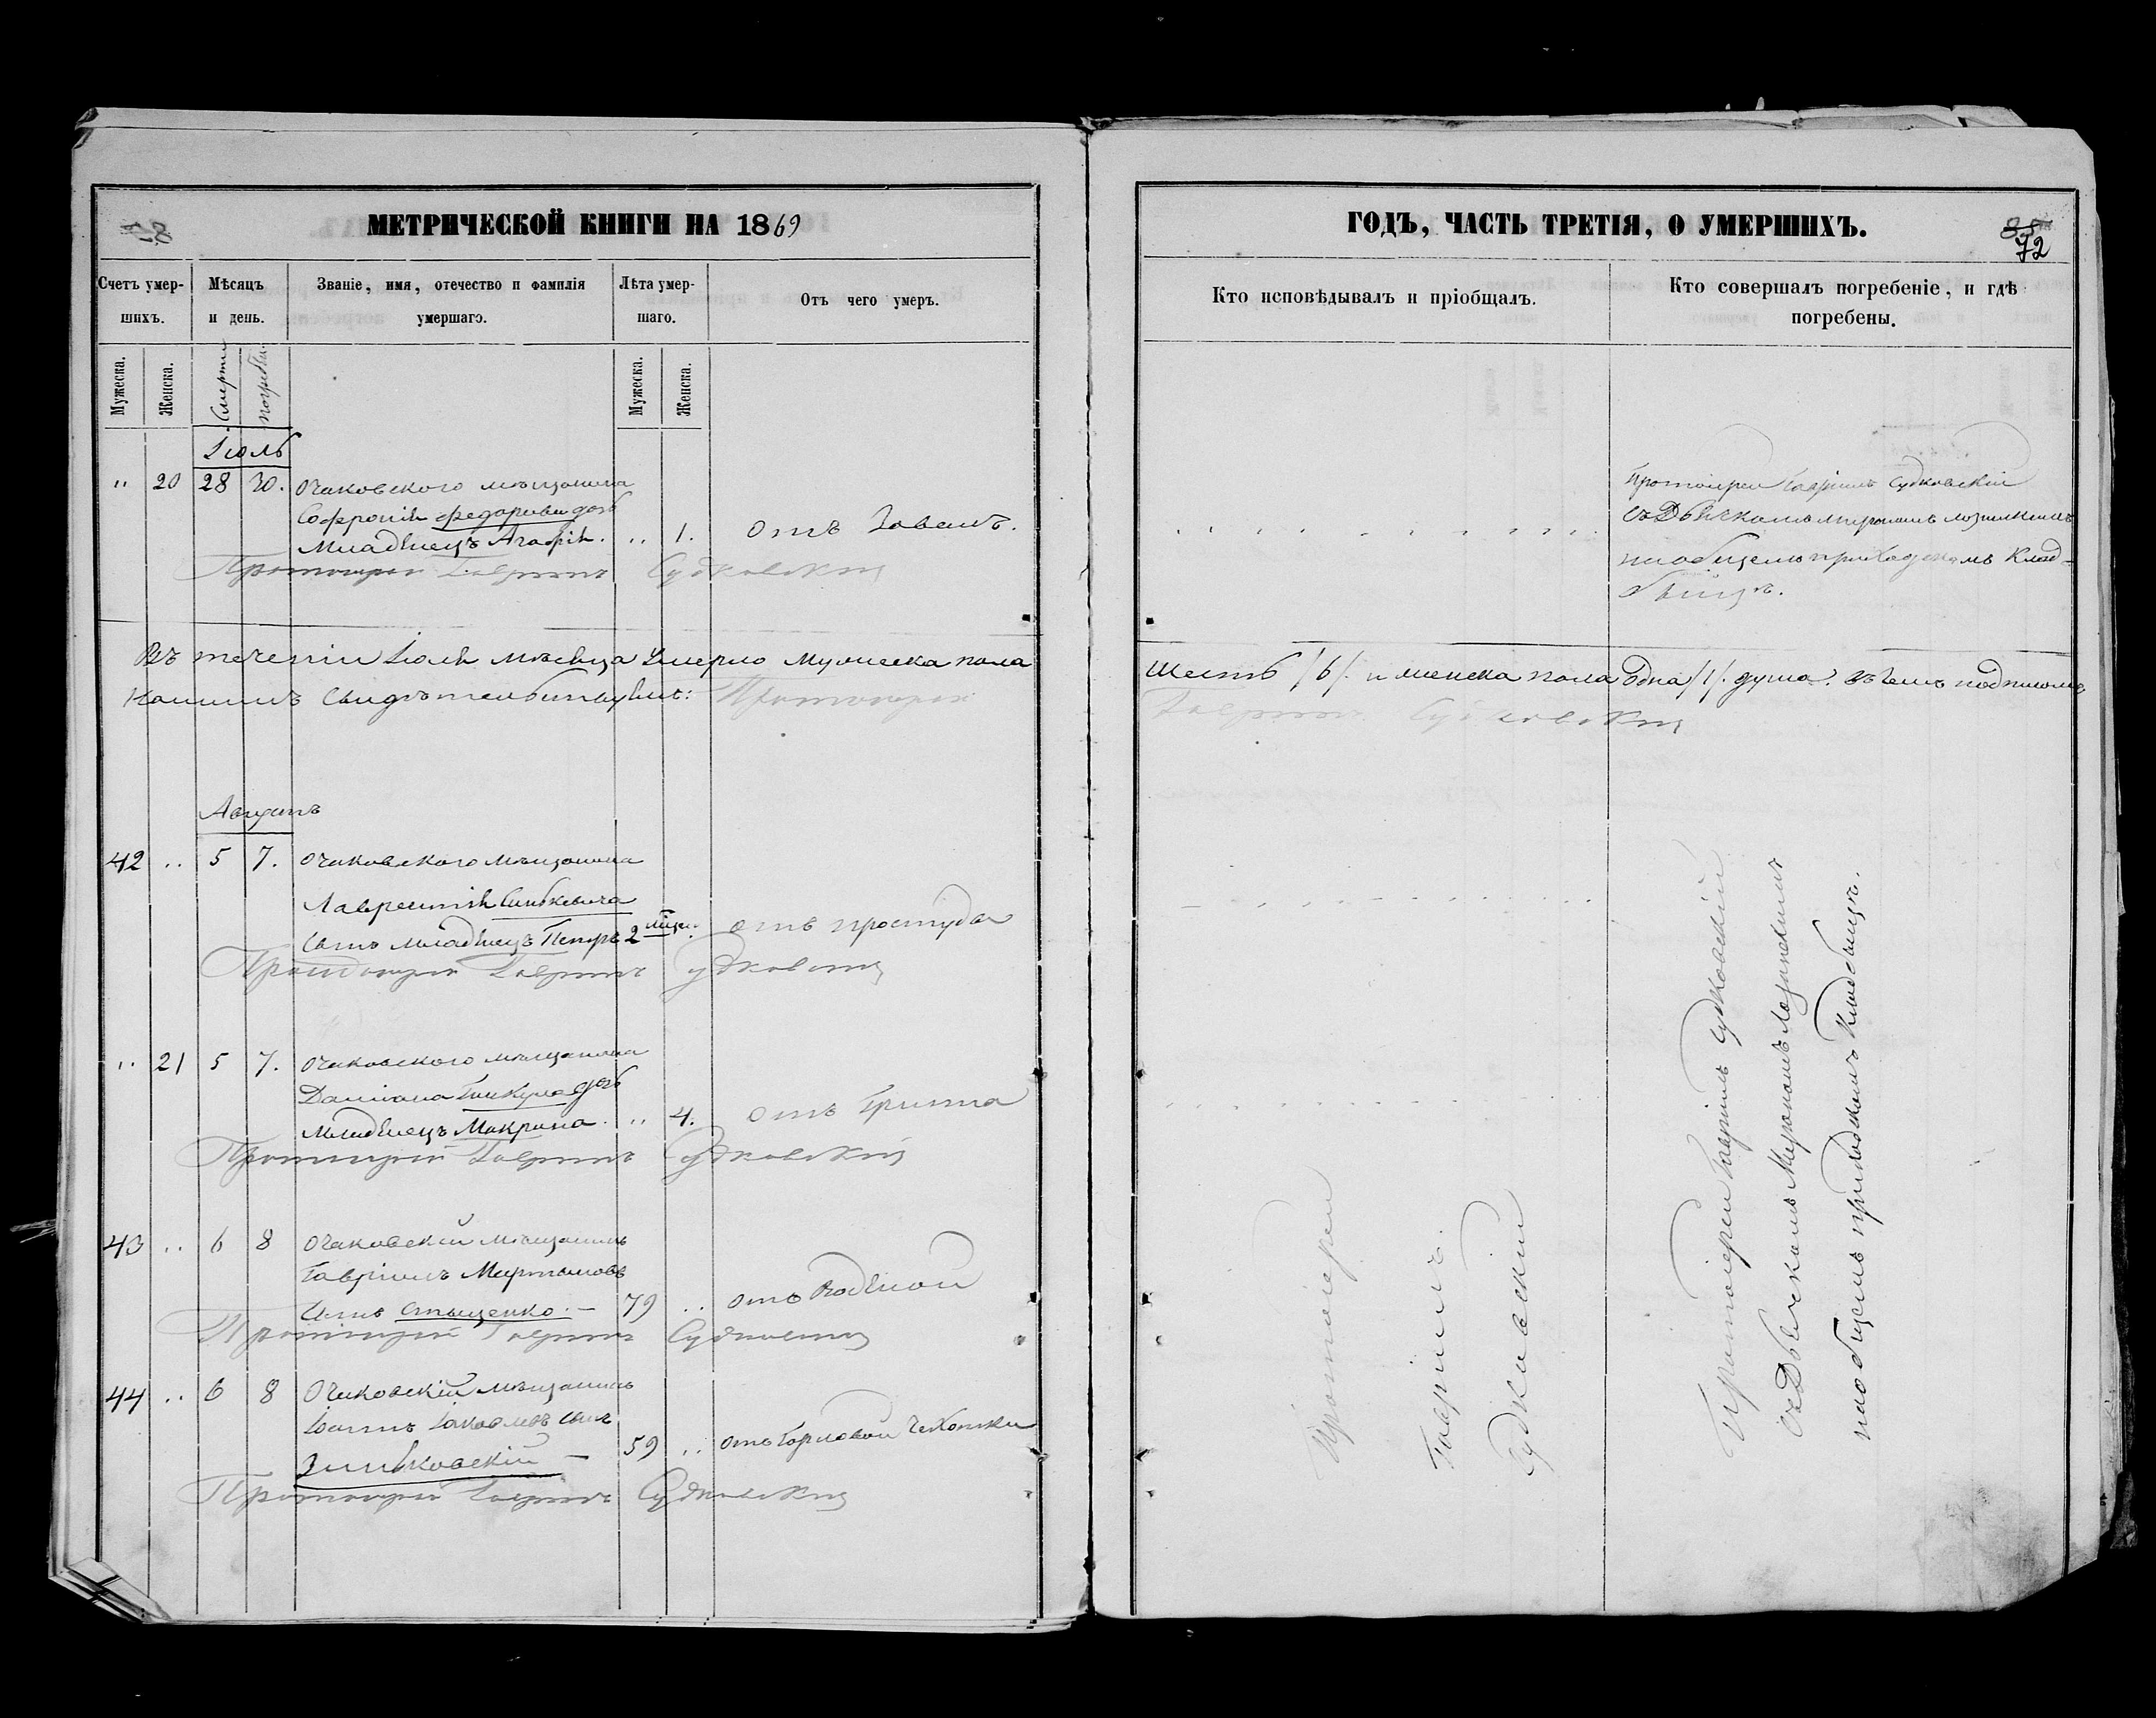 МЕТРИЧЕСКОЙ КНИГИ НА 1869
Счетъ умер-
шихъ.
Мѣсяцъ
и день.
Званіе, имя, отечество и фамилія
умершаго.
Лѣта умер-
шаго.
Отъ чего умеръ.
Мужеска.
Женска.
Смерти
погребен.
Мужеска.
Женска.
Іюль
" 20 28 30. Очаковского мѣщанина
Софронія Федорива дочь
Младенецъ Агафія. .. 1. отъ
Протоіерей Гавріилъ Судковскій
Въ теченіи Іюля мѣсяца умерло мужеска пола
Протоіерей
Августъ
42 .. 5 7. Очаковского мѣщанина
Лаврентія Синькевича
сынъ младенецъ Петръ 2 мѣсец. отъ простуды
Протоіерей Гавріилъ Судковскій
.. 21 5 7. Очаковского мѣщанина
Даміана дочь
младенецъ Макрина. .. 4. отъ Гриппа
Протоіерей Гавріилъ Судковскій
43 .. 6 8 Очаковскій мѣщанинъ
Гавріилъ Мартыновъ
сынъ Стыценко. – 79 .. отъ Водяной
Протоіерей Гавріилъ Судковскій
44 .. 6 8 Очаковскій мѣщанинъ
Іоаннъ Іаковлевъ сынъ
Зиньковскій – 59 .. отъ Горловой Чахотки
Протоіерей Гавріилъ Судковскій
ГОДЪ, ЧАСТЬ ТРЕТІЯ, О УМЕРШИХЪ.
85
72
Кто исповѣдывалъ и пріобщалъ.
Кто совершалъ погребеніе, и гдѣ
погребены.
Протоіерей Гавріилъ Судковскій
съ Дьячкомъ Мирономъ
на общемъ приходскомъ Клад-
бищѣ.
Шесть /6/. и женска пола одна /1/. душа. въ чемъ подписомъ
Гавріилъ Судковскій
Протоіерей
Гавріилъ
Судковскій
Протоіерей Гавріилъ Судковскій
съ Дьячкомъ Мирономъ
на общемъ приходскомъ Кладбищѣ.